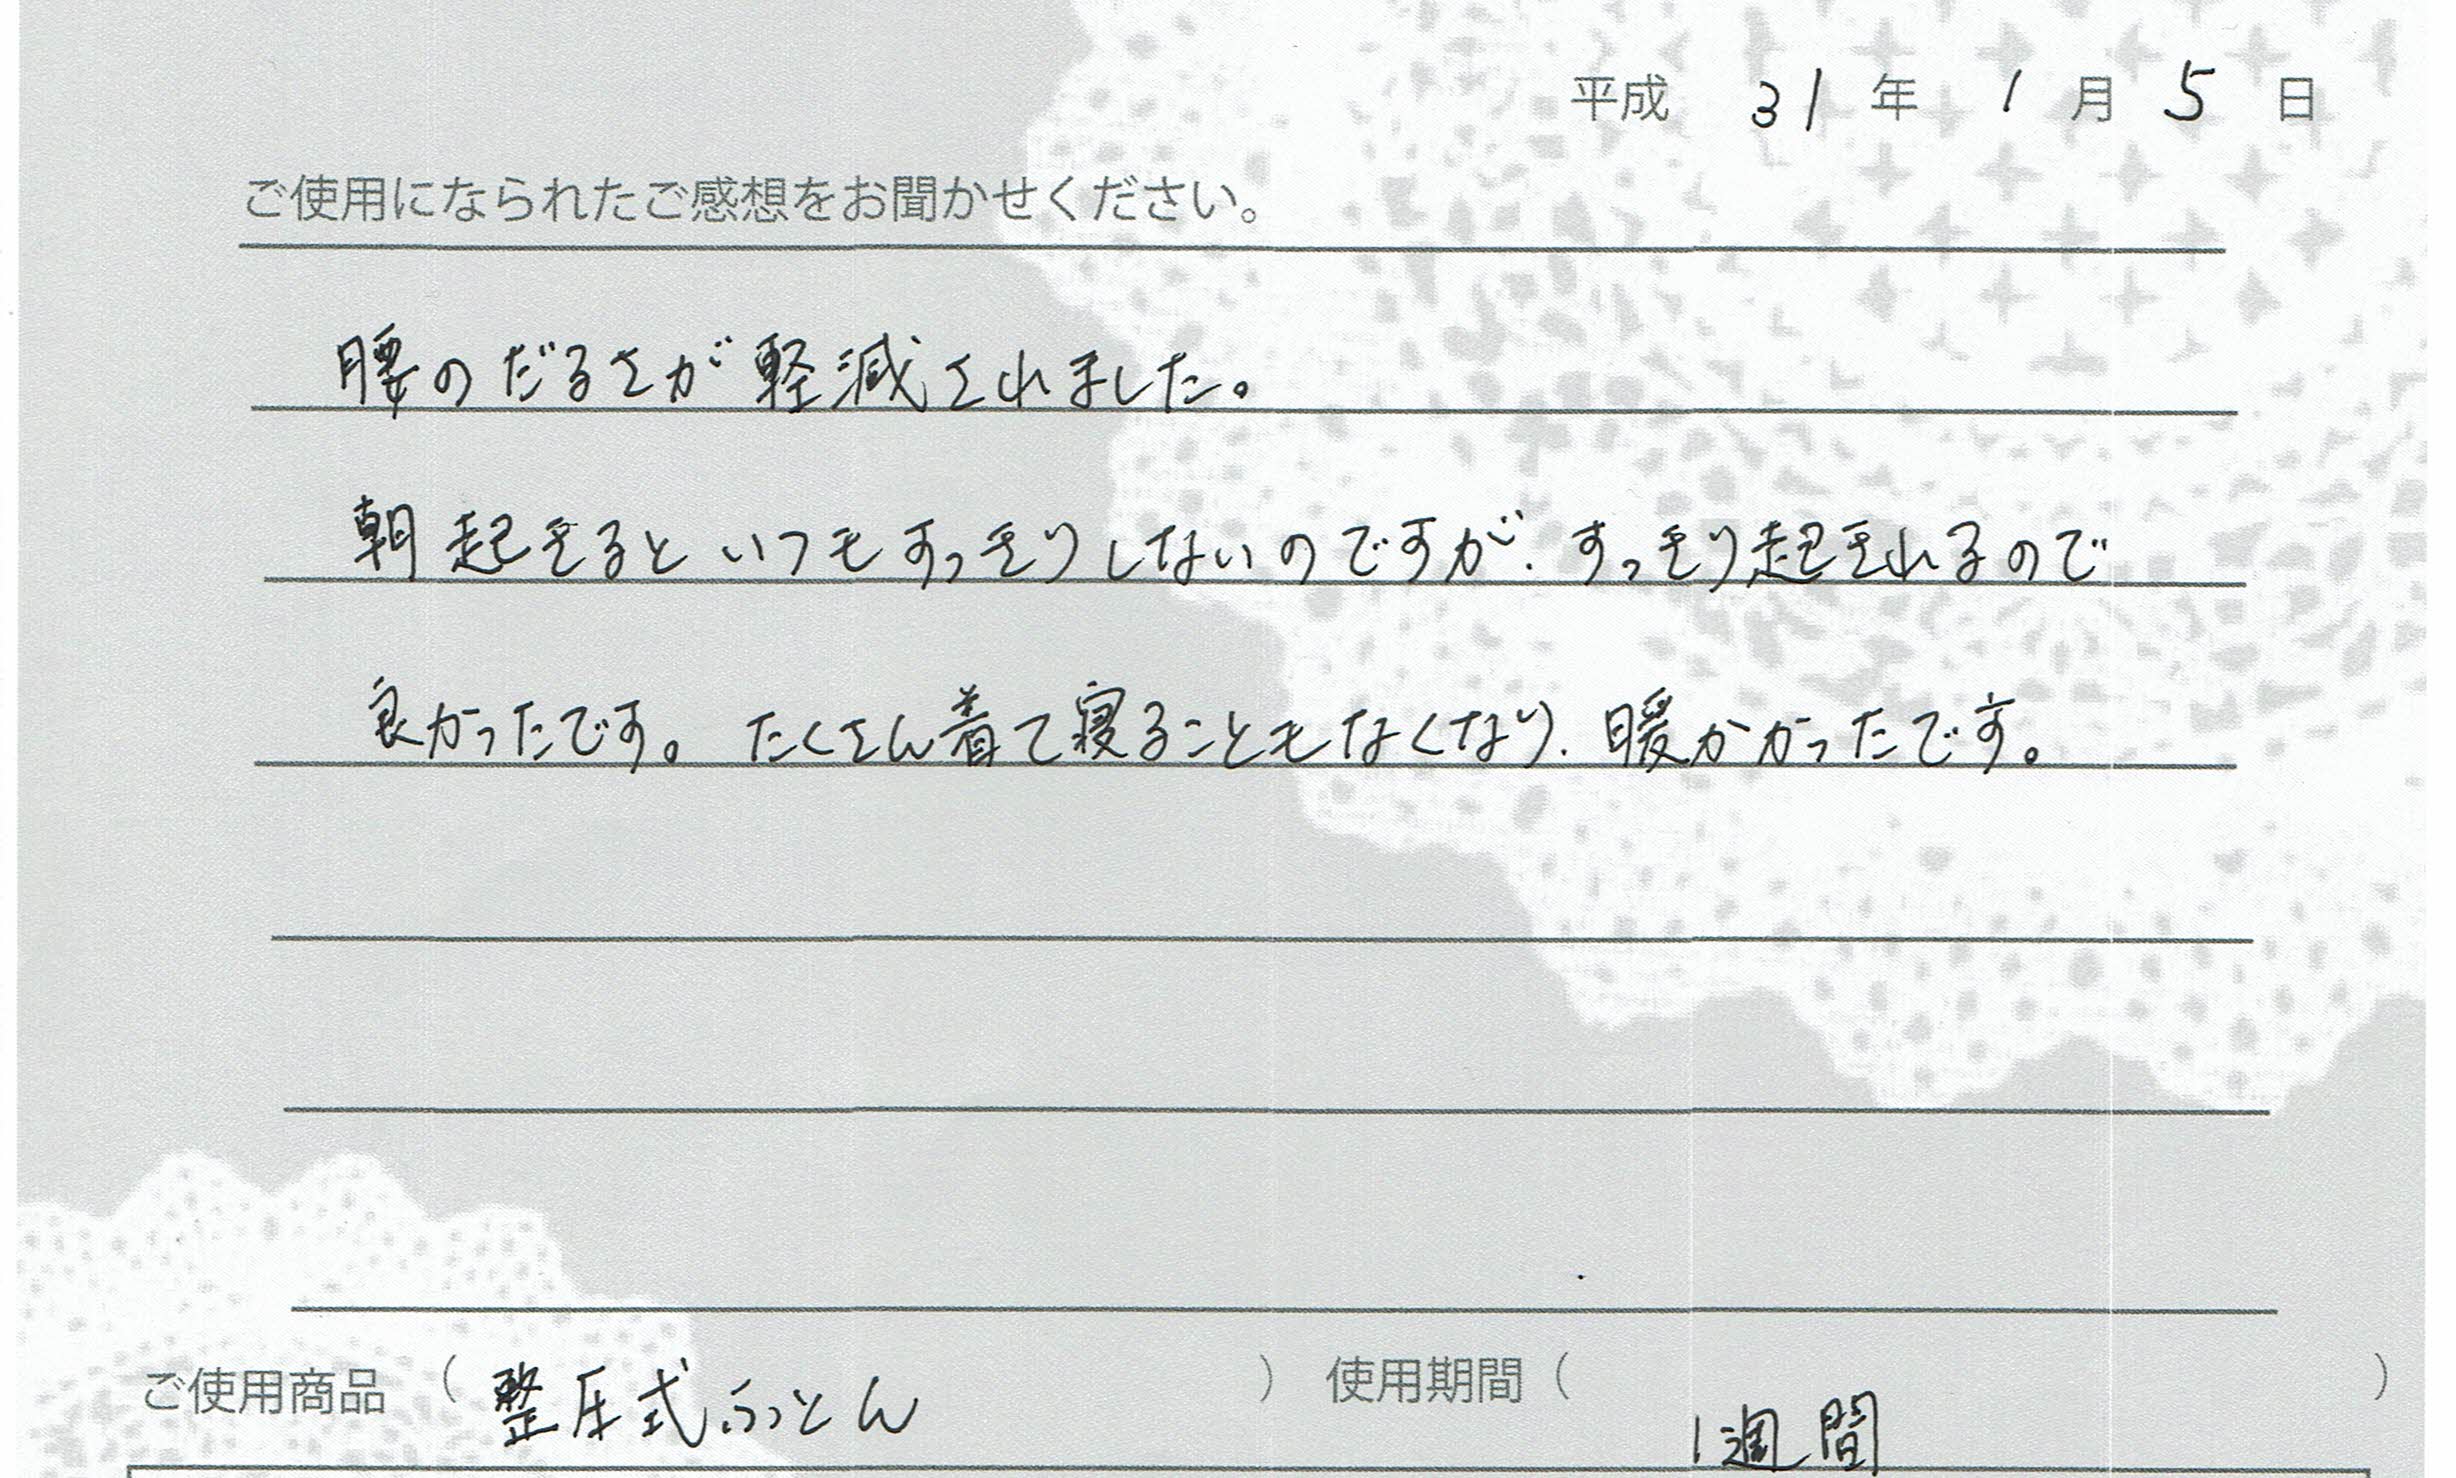 平成 31 年 1 月 5 日
ご使用になられたご感想をお聞かせください。
腰のだるさが軽減されました。
朝起きるといつもすっきりしないのですが、すっきり起きれるので
良かったです。たくさん着て寝ることもなくなり、暖かかったです。
ご使用商品 ( 整圧式ふとん ) 使用期間 ( 1週間 )